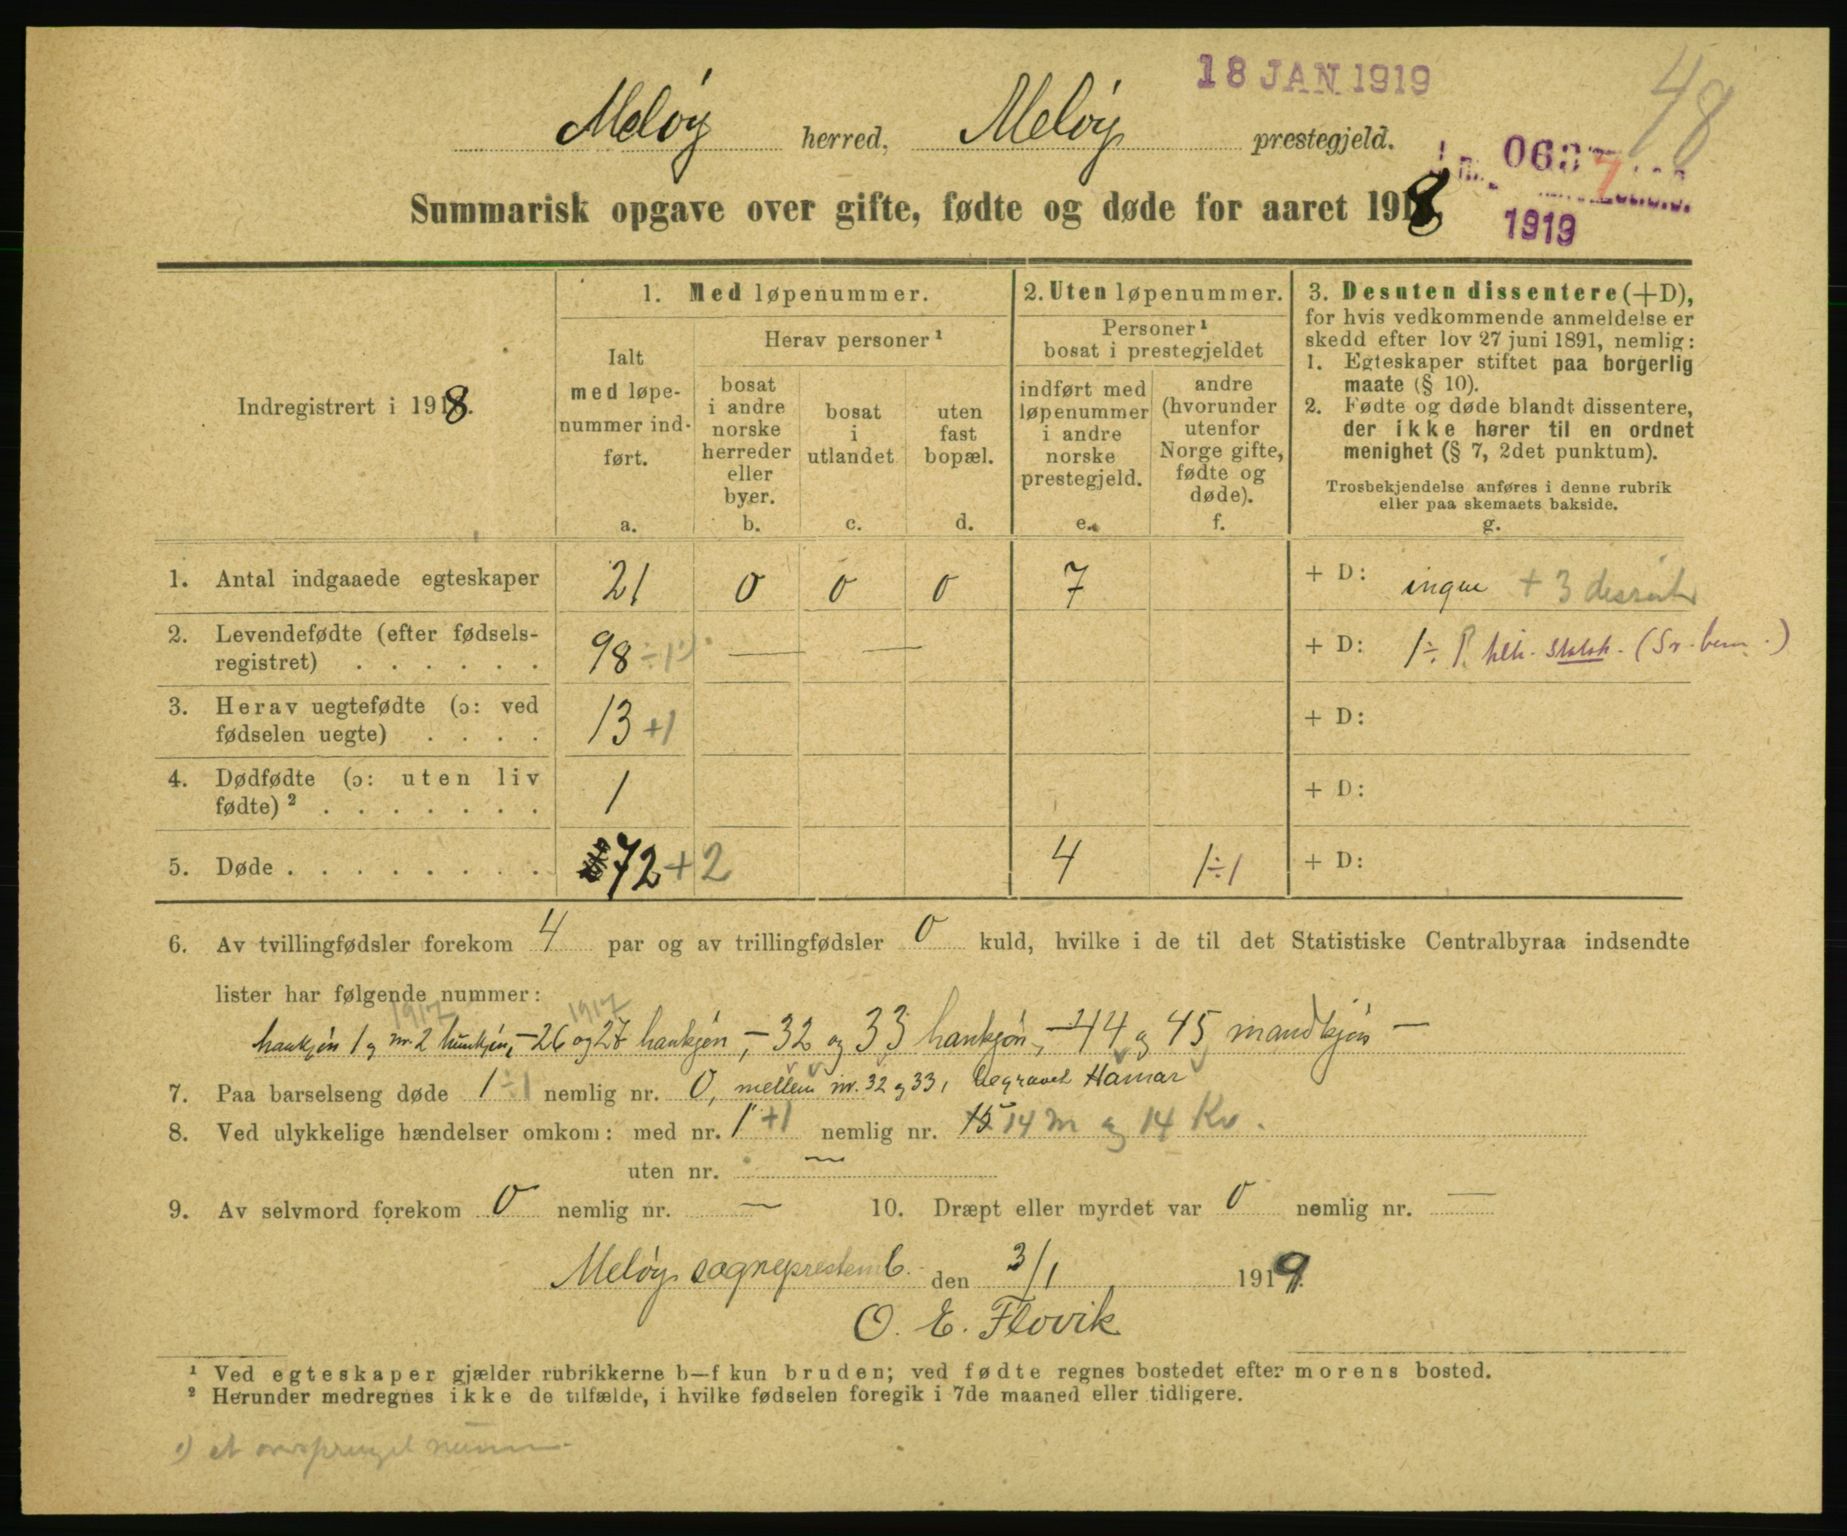 18 JAN 1919
48
Meløy herred, Meløy prestegjeld.
063 7
1919
Summarisk opgave over gifte, fødte og døde for aaret 1918
Indregistrert i 1918.
1. Med løpenummer.
Ialt
med løpe-
nummer ind-
ført.
a.
Herav personer ¹
bosat
i andre
norske
herreder
eller
byer.
b.
bosat
i
utlandet
c.
uten
fast
bopæl.
d.
2. Uten løpenummer.
Personer ¹
bosat i prestegjeldet
indført med
løpenummer
i andre
norske
prestegjeld.
e.
andre
(hvorunder
utenfor
Norge gifte,
fødte og
døde).
f.
3. Desuten dissentere (+D),
for hvis vedkommende anmeldelse er
skedd efter lov 27 juni 1891, nemlig:
1. Egteskaper stiftet paa borgerlig
maate (§ 10).
2. Fødte og døde blandt dissentere,
der ikke hører til en ordnet
menighet (§ 7, 2det punktum).
Trosbekjendelse anføres i denne rubrik
eller paa skemaets bakside.
g.
1. Antal indgaaede egteskaper 21 0 0 0 7 + D: ingen + 3
2. Levendefødte (efter fødsels-
registret) . . . . . . 98 ÷ 1 — — + D: 1 ÷
3. Herav uegtefødte (ɔ: ved
fødselen uegte) . . . . 13 +1 + D:
4. Dødfødte (ɔ: uten liv
fødte) ² . . . . . . . 1 + D:
5. Døde . . . . . . . . 72 + 2 4 1 ÷ 1 + D:
6. Av tvillingfødsler forekom 4 par og av trillingfødsler 0 kuld, hvilke i de til det Statistiske Centralbyraa indsendte
lister har følgende nummer:
1917 1917
hankjøn 1 og nr. 2 hunkjøn, – 26 og 27 hankjøn, – 32 og 33 hankjøn, – 44 og 45 mandkjøn –
7. Paa barselseng døde 1 ÷ 1 nemlig nr. 0, mellem nr. 32 og 33, begravet Hamar
8. Ved ulykkelige hændelser omkom: med nr. 1 +1 nemlig nr. 14 m og 14 Kv.
uten nr. —
9. Av selvmord forekom 0 nemlig nr. — 10. Dræpt eller myrdet var 0 nemlig nr. —
Meløy sogneprestemb. den 3/1 1919.
O. E. Flovik
¹ Ved egteskaper gjælder rubrikkerne b—f kun bruden; ved fødte regnes bostedet efter morens bosted.
² Herunder medregnes ikke de tilfælde, i hvilke fødselen foregik i 7de maaned eller tidligere.
1) et oversprunget